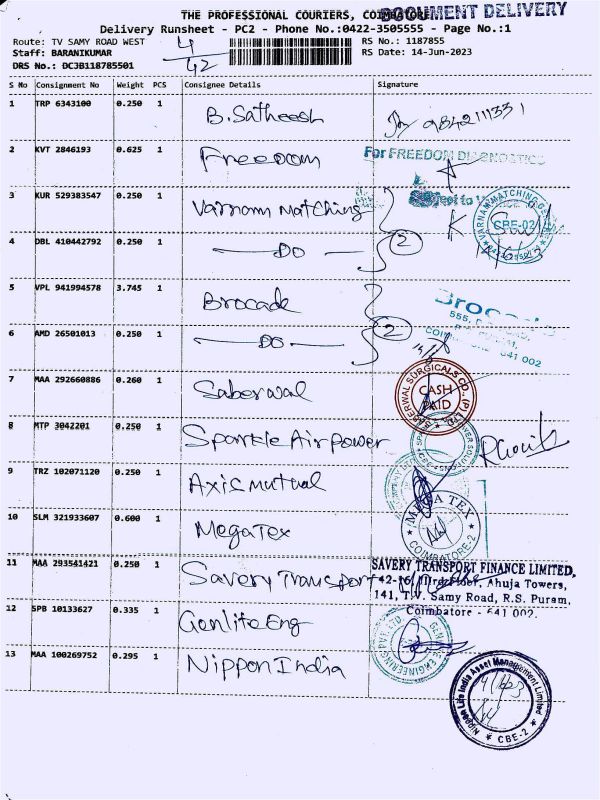 THE PROFESSIONAL COURIERS, COIMBATORE
DOCUMENT DELIVERY
Delivery Runsheet - PC2 - Phone No.:0422-3505555 - Page No.:1
Route: TV SAMY ROAD WEST
RS No.: 1187855
Staff: BARANIKUMAR
RS Date: 14-Jun-2023
DRS No.: DCJB118785501
4/42
S No Consignment No Weight PCS Consignee Details Signature
1 TRP 6343100 0.250 1 B.Satheesh 9842111331
2 KVT 2846193 0.625 1 Freedom For FREEDOM DIAGNOSTICS
3 KUR 529383547 0.250 1 Varnam Matching VARNAM MATCHING CBE-02
4 DBL 410442792 0.250 1 DO 2
5 VPL 941994578 3.745 1 Brocade Brocade
555,
COIMBATORE 641 002
6 AMD 26501013 0.250 1 DO 2
7 MAA 292660886 0.260 1 Saberwal SABERWAL SURGICALS CO., (P) LTD. CASH PAID
8 MTP 3042201 0.250 1 Sparkle Airpower
9 TRZ 102071120 0.250 1 Axis Mutual
10 SLM 321933607 0.600 1 MegaTex MEGA TEX COIMBATORE-2
11 MAA 293541421 0.250 1 Savery Transport SAVERY TRANSPORT FINANCE LIMITED,
Ahuja Towers,
141, T.V. Samy Road, R.S. Puram,
Coimbatore - 641 002.
12 SPB 10133627 0.335 1 Genlite Eng ENGINEERING PVT. LTD.
13 MAA 100269752 0.295 1 Nippon India Nippon Life India Asset Management Limited CBE-2